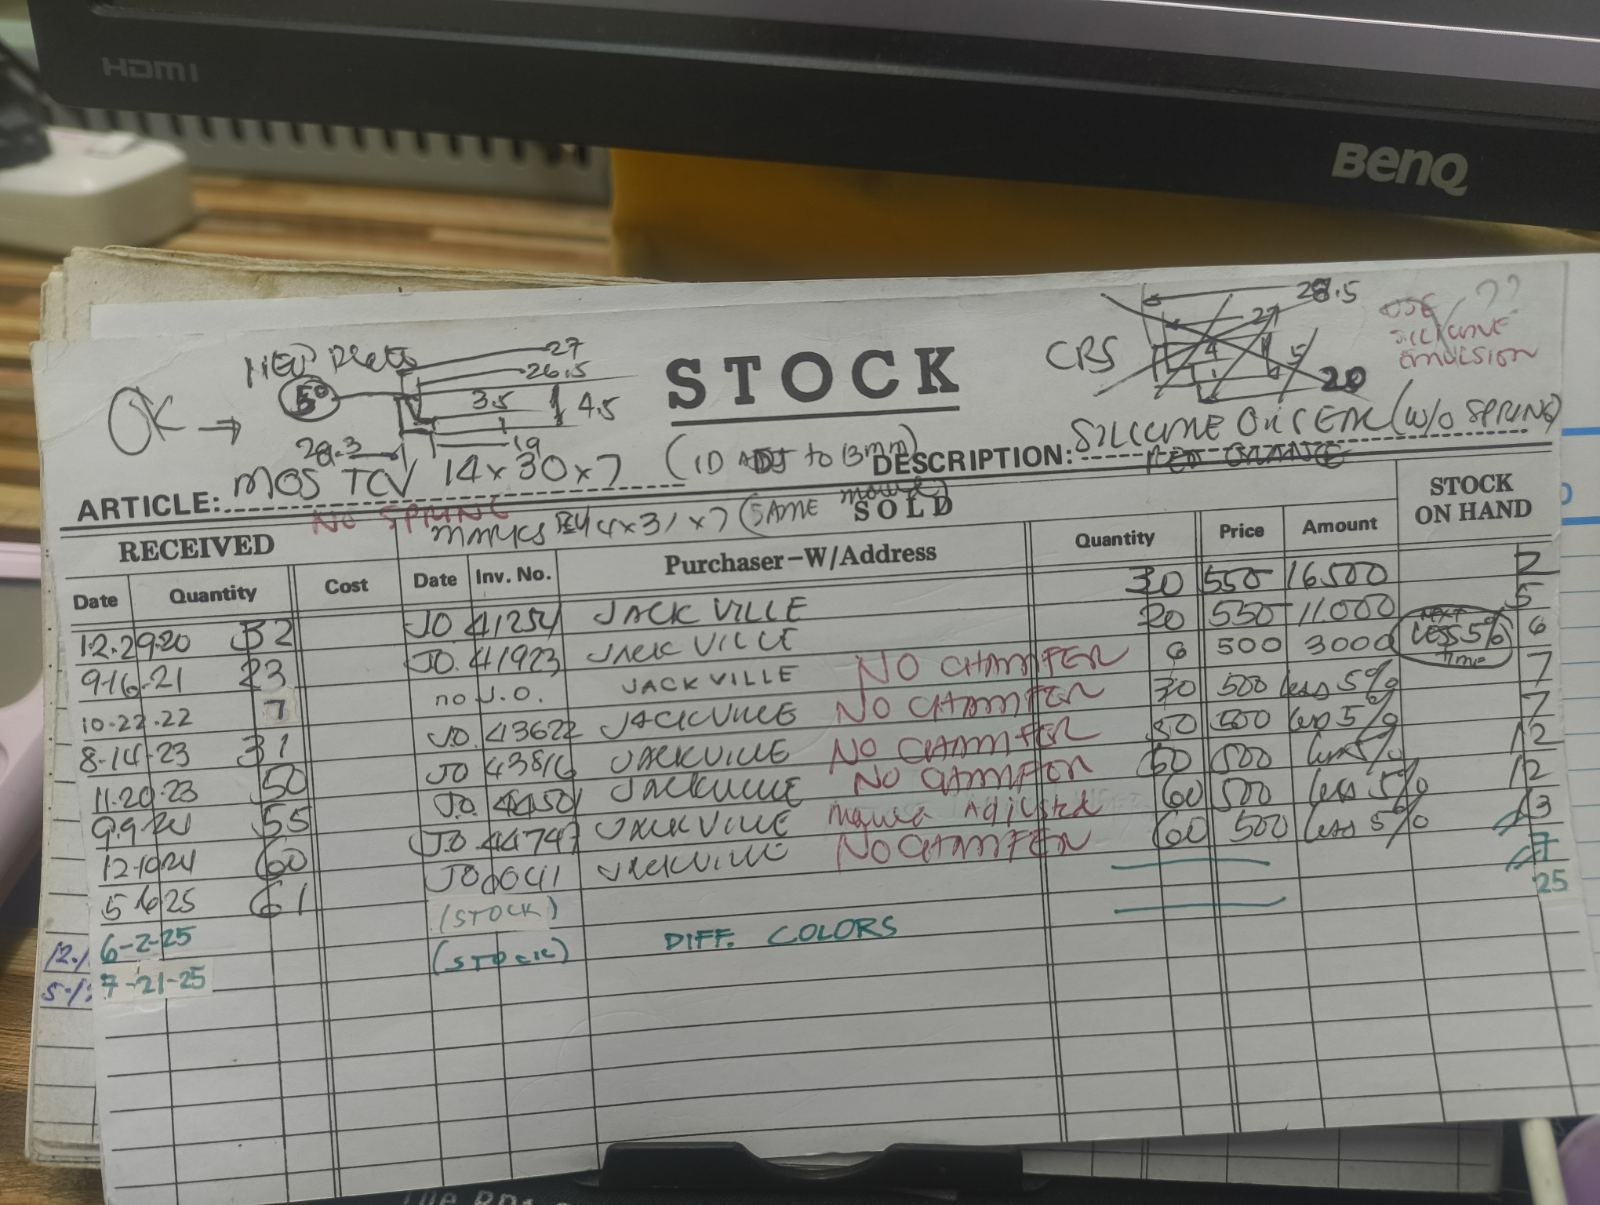 HDMI
BenQ
NEW PLATES
27
26.5
5°
3.5
4.5
OK →
28.3
19
STOCK
CRS
28.5
27
4
5
20
USE
SILICONE
EMULSION
??
ARTICLE: MOS TCV 14 x 30 x 7 (ID ADJ to 13mm) DESCRIPTION: SILICONE OIL SEAL (W/O SPRING)
RED ORANGE
NO SPRING
14 x 31 x 7 (SAME mould)
RECEIVED SOLD STOCK ON HAND
Date Quantity Cost Date Inv. No. Purchaser-W/Address Quantity Price Amount
12.29.20 32 JO 41254 JACK VILLE 30 550 16,500 2
9-16-21 23 JO. 41923 JACK VILLE 20 550 11,000 5
10-22-22 7 no J.O. JACKVILLE NO CHAMFER 6 500 3000 NEXT LESS 5% Time 6
8-14-23 31 JO. 43622 JACKVILLE NO CHAMFER 30 500 less 5% 7
11.20.23 50 JO 43816 JACKVILLE NO CHAMFER 50 500 less 5% 7
9.9.24 55 JO. JACKVILLE NO CHAMFER 500 less 5% 12
12-10-24 60 JO. 44747 JACKVILLE Adjusted 60 500 less 5% 12
5 6 25 61 JO 0041 JACKVILLE NO CHAMFER 60 500 less 5% 13
6-2-25 (STOCK) 7
7-21-25 (STOCK) DIFF. COLORS 25